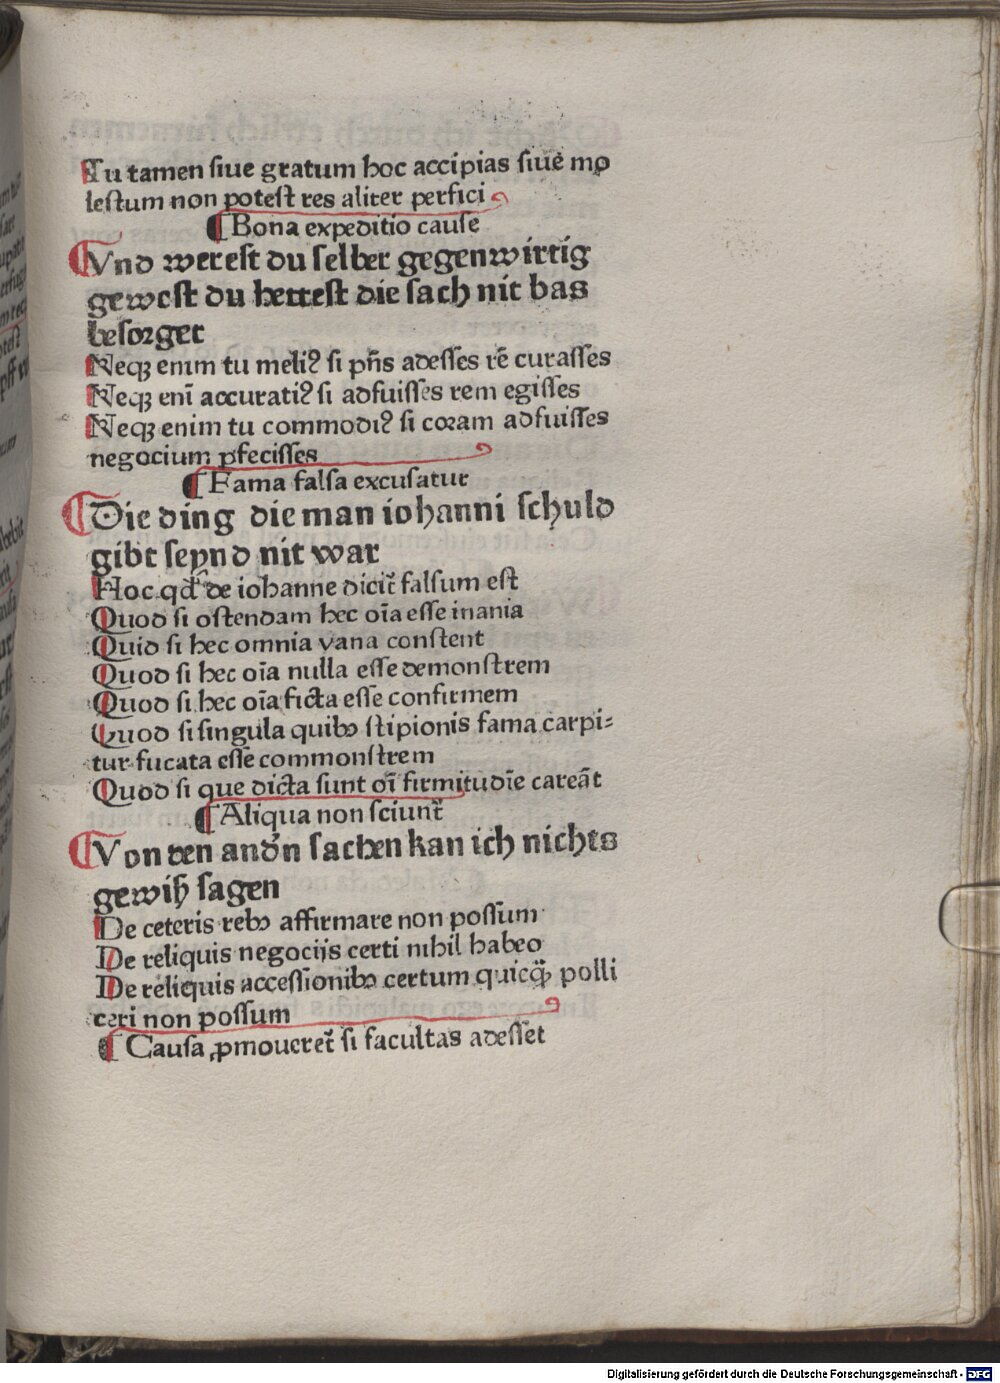 Tu tamen ſiue gratum hoc accipias ſiue mo
leſtum non poteſt res aliter perfici
¶ Bona expeditio cauſe
¶ Vnd wereſt du ſelber gegenwirtig
geweſt du hetteſt die ſach nit bas
beſorget
Neqꝫ enim tu meliꝰ ſi pn̄s adeſſes rē curaſſes
Neqꝫ eni̅ accuratiꝰ ſi adfuiſſes rem egiſſes
Neqꝫ enim tu commodiꝰ ſi coꝛam adfuiſſes
negocium ꝑfeciſſes
¶ Fama falſa excuſatur
¶ Die ding die man iohanni ſchuld
gibt ſeynd nit war
Hoc qd̓ de iohanne dicit̄ falſum eſt
Quod ſi oſtendam hec oi̅a eſſe inania
Quid ſi hec omnia vana conſtent
Quod ſi hec oi̅a nulla eſſe demonſtrem
Quod ſi hec oi̅a ficta eſſe confirmem
Quod ſi ſingula quibꝰ ſtipionis fama carpi⸗
tur fucata eſſe commonſtrem
Quod ſi que dicta ſunt oi̅ firmitudi̅e careāt
¶ Aliqua non ſciunt̄
¶ Von den andn̓ ſachen kan ich nichts
gewiß ſagen
De ceteris rebꝰ affirmare non poſſum
De reliquis negocijs certi nihil habeo
De reliquis acceſſionibꝰ certum quicqꝫ̄ polli
ceri non poſſum
¶ Cauſa ꝓmoueret̄ ſi facultas adeſſet
Digitalisierung gefördert durch die Deutsche Forschungsgemeinschaft - DFG